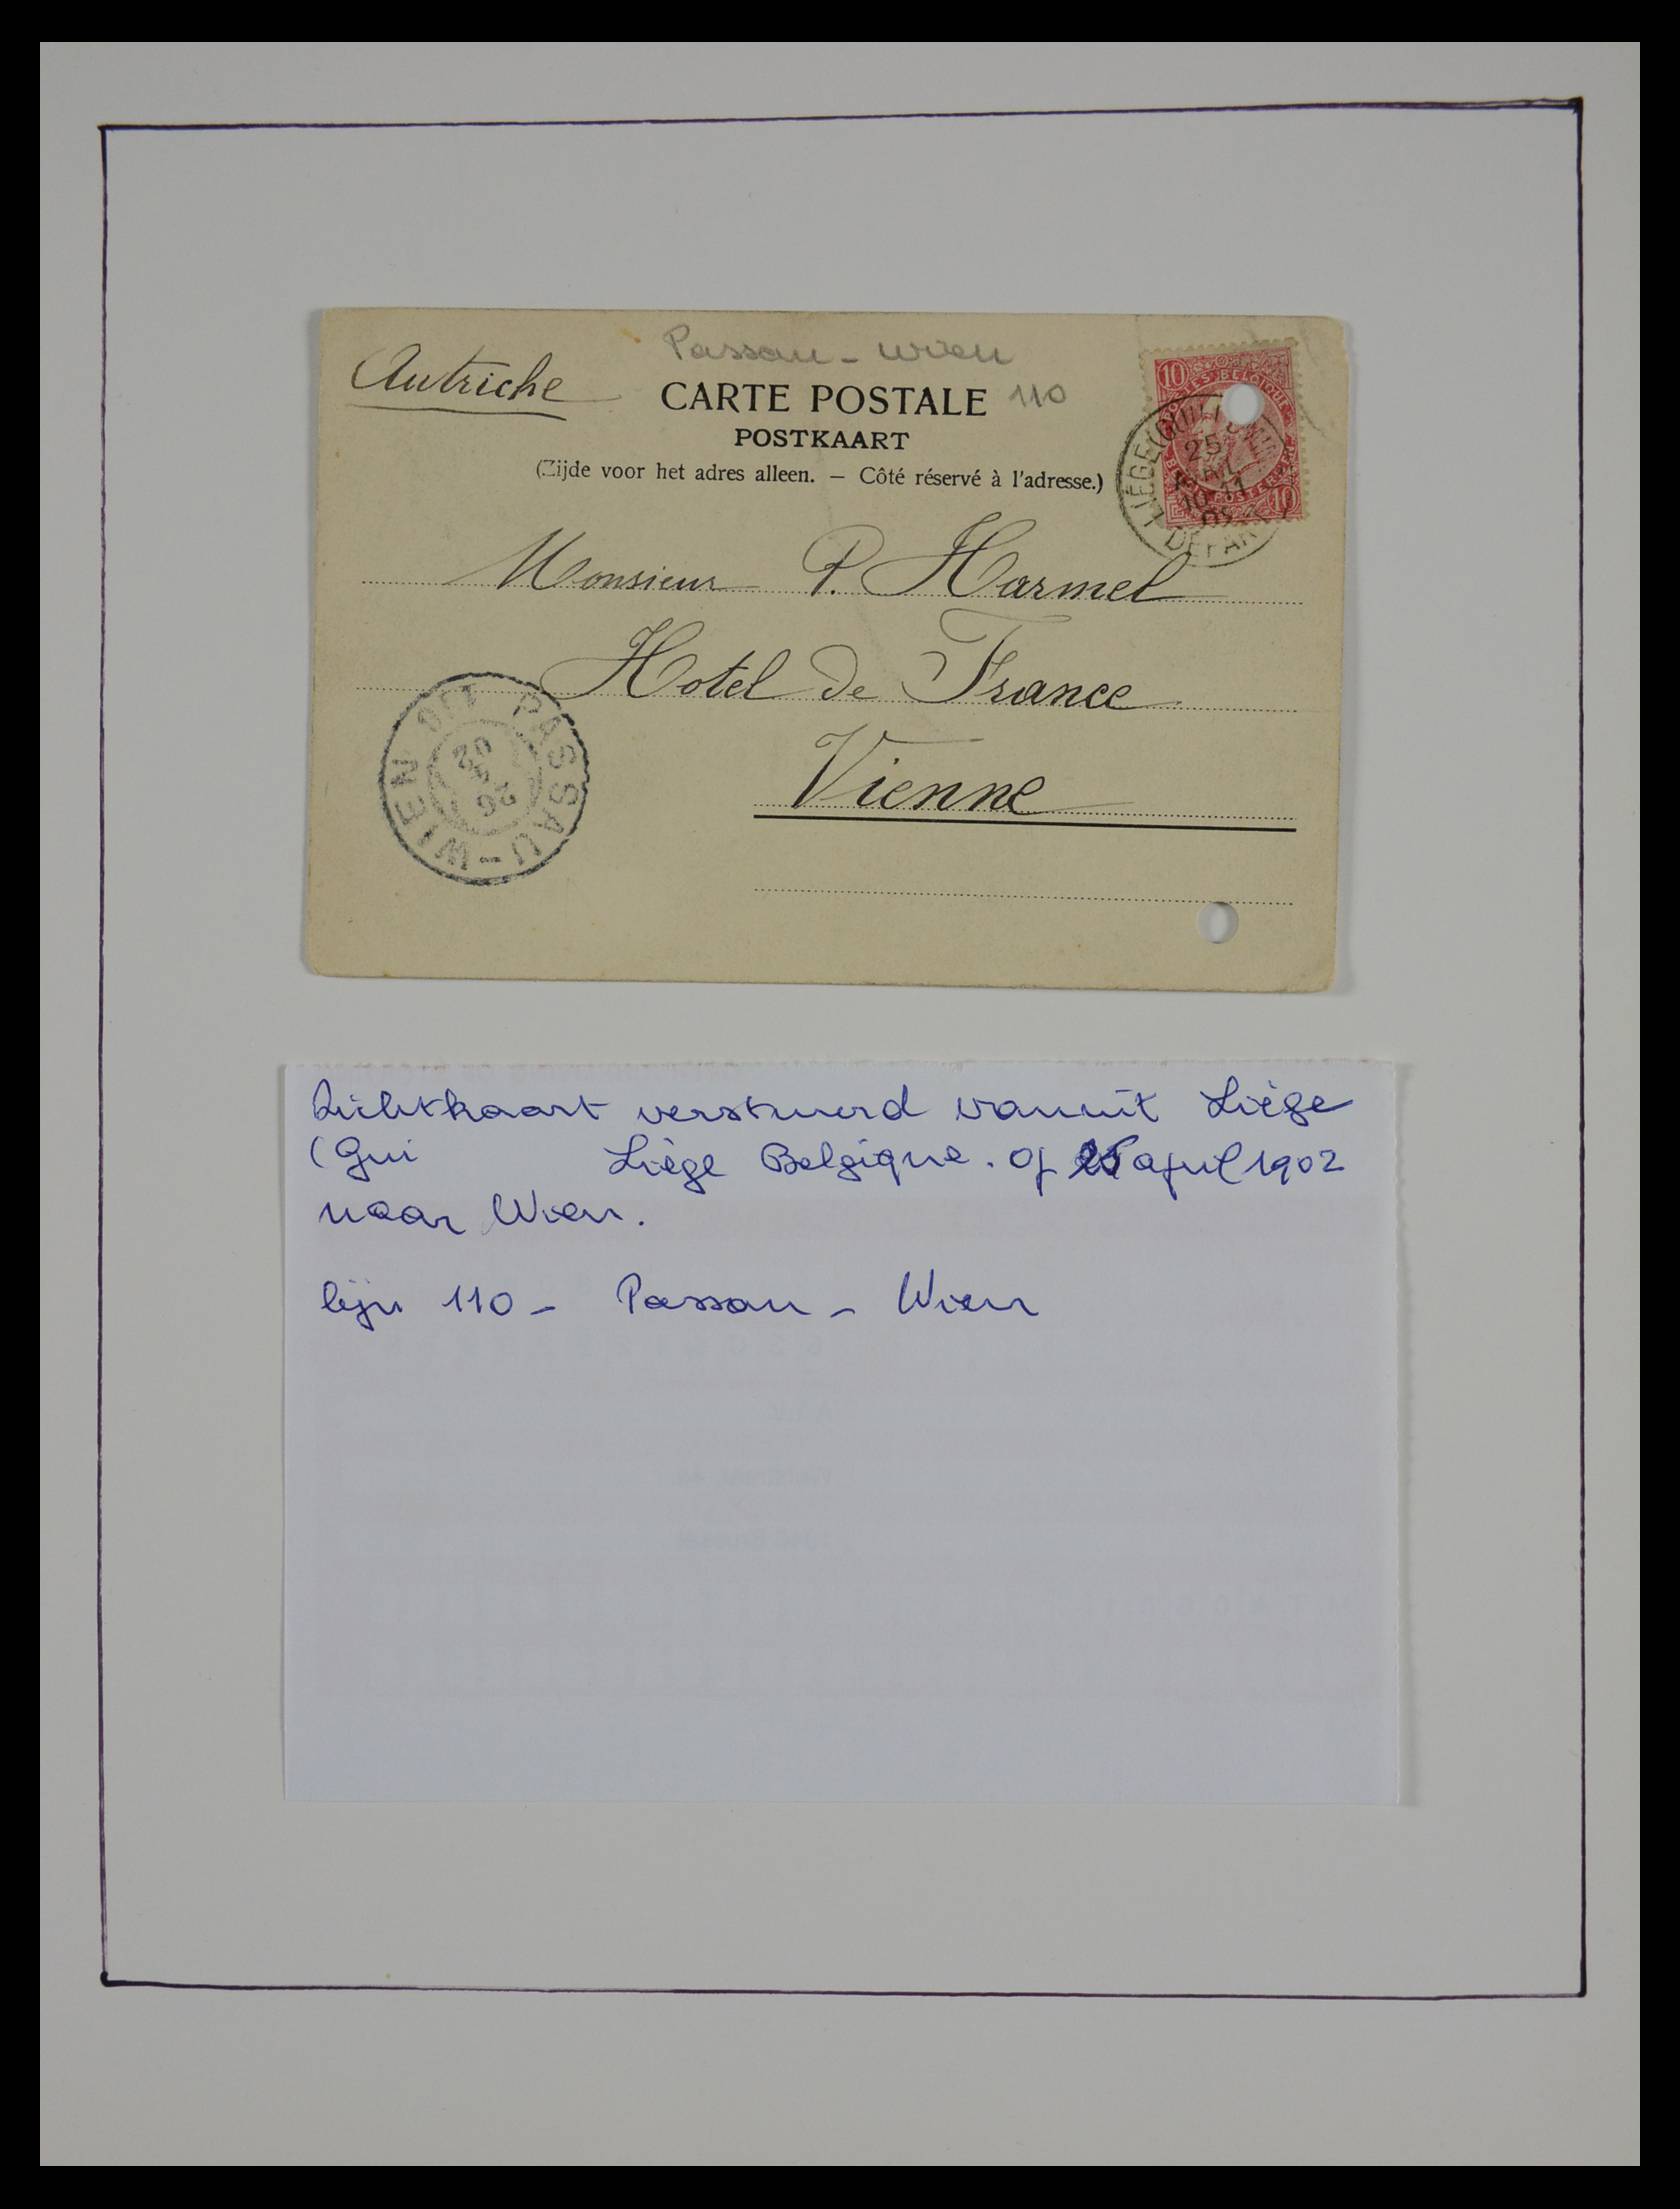 Passau - Wien
Autriche
CARTE POSTALE 110
POSTKAART
(Zijde voor het adres alleen. — Côté réservé à l'adresse.)
10 10
LIÉGE (GUILLEMINS)
25
AVRIL
10-11
02
DÉPART
Monsieur P. Harmel
Hotel de France
Vienne
PASSAU-WIEN 110
26
4
02
Zichtkaart verstuurd vanuit Liège
(Gui Liège Belgique. op 25 april 1902
naar Wien.
lijn 110 - Passau - Wien